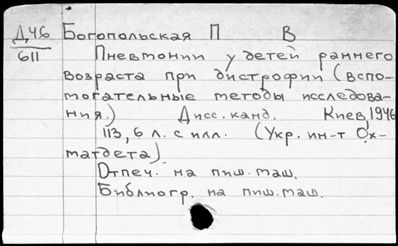 Д46 Богопольская П В
611 Пневтонии у детей раннего
возраста при дистрофии (вспо-
могательные методы исследова-
ния.) Дисс. канд. Киев, 1946
113, 6 л. с илл. (Укр. ин-т Ох-
матдета).
Отпеч. на пиш. маш.
Библиогр. на пиш. маш.